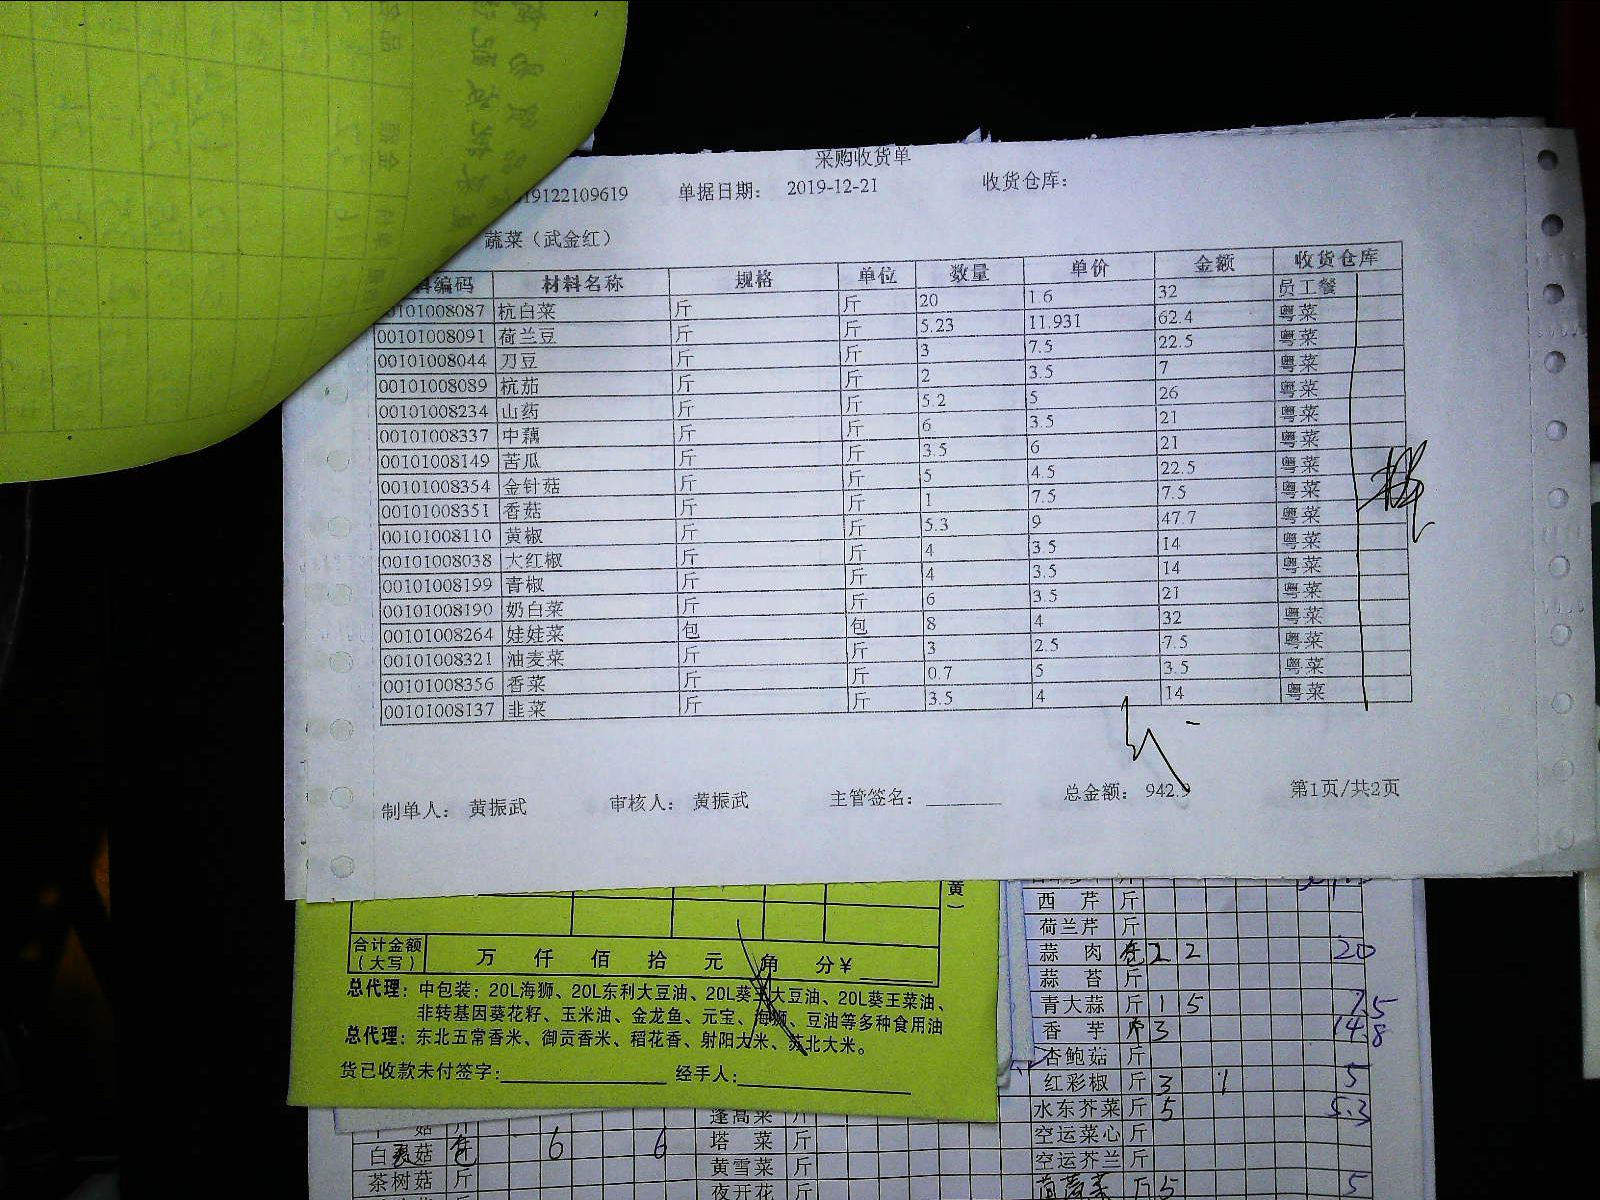 采购收货单
19122109619 单据日期: 2019-12-21 收货仓库:
蔬菜（武金红）
编码 材料名称 规格 单位 数量 单价 金额 收货仓库
00101008087 杭白菜 斤 斤 20 1.6 32 员工餐
00101008091 荷兰豆 斤 斤 5.23 11.931 62.4 粤菜
00101008044 刀豆 斤 斤 3 7.5 22.5 粤菜
00101008089 杭茄 斤 斤 2 3.5 7 粤菜
00101008234 山药 斤 斤 5.2 5 26 粤菜
00101008337 中藕 斤 斤 6 3.5 21 粤菜
00101008149 苦瓜 斤 斤 3.5 6 21 粤菜
00101008354 金针菇 斤 斤 5 4.5 22.5 粤菜
00101008351 香菇 斤 斤 1 7.5 7.5 粤菜
00101008110 黄椒 斤 斤 5.3 9 47.7 粤菜
00101008038 大红椒 斤 斤 4 3.5 14 粤菜
00101008199 青椒 斤 斤 4 3.5 14 粤菜
00101008190 奶白菜 斤 斤 6 3.5 21 粤菜
00101008264 娃娃菜 包 包 8 4 32 粤菜
00101008321 油麦菜 斤 斤 3 2.5 7.5 粤菜
00101008356 香菜 斤 斤 0.7 5 3.5 粤菜
00101008137 韭菜 斤 斤 3.5 4 14 粤菜
制单人: 黄振武 审核人: 黄振武 主管签名: 总金额: 942.9 第1页/共2页
黄）
合计金额（大写） 万 仟 佰 拾 元 角 分¥
总代理: 中包装: 20L海狮、20L东利大豆油、20L葵王大豆油、20L葵王菜油、
非转基因葵花籽、玉米油、金龙鱼、元宝、海狮、豆油等多种食用油
总代理: 东北五常香米、御贡香米、稻花香、射阳大米、苏北大米。
货已收款未付签字: 经手人:
西芹 斤
荷兰芹 斤
蒜肉 包 2 2 20
蒜苔 斤
青大蒜 斤 1 5 7.5
香芋 斤 3 14.8
杏鲍菇 斤
红彩椒 斤 3 1 5
水东芥菜 斤 5 5.3
空运菜心 斤
空运芥兰 斤
斤 5 5
蓬蒿菜 斤
塔菜 斤
黄雪菜 斤
夜开花 斤
菇 斤
白菇 包 6 6
茶树菇 斤